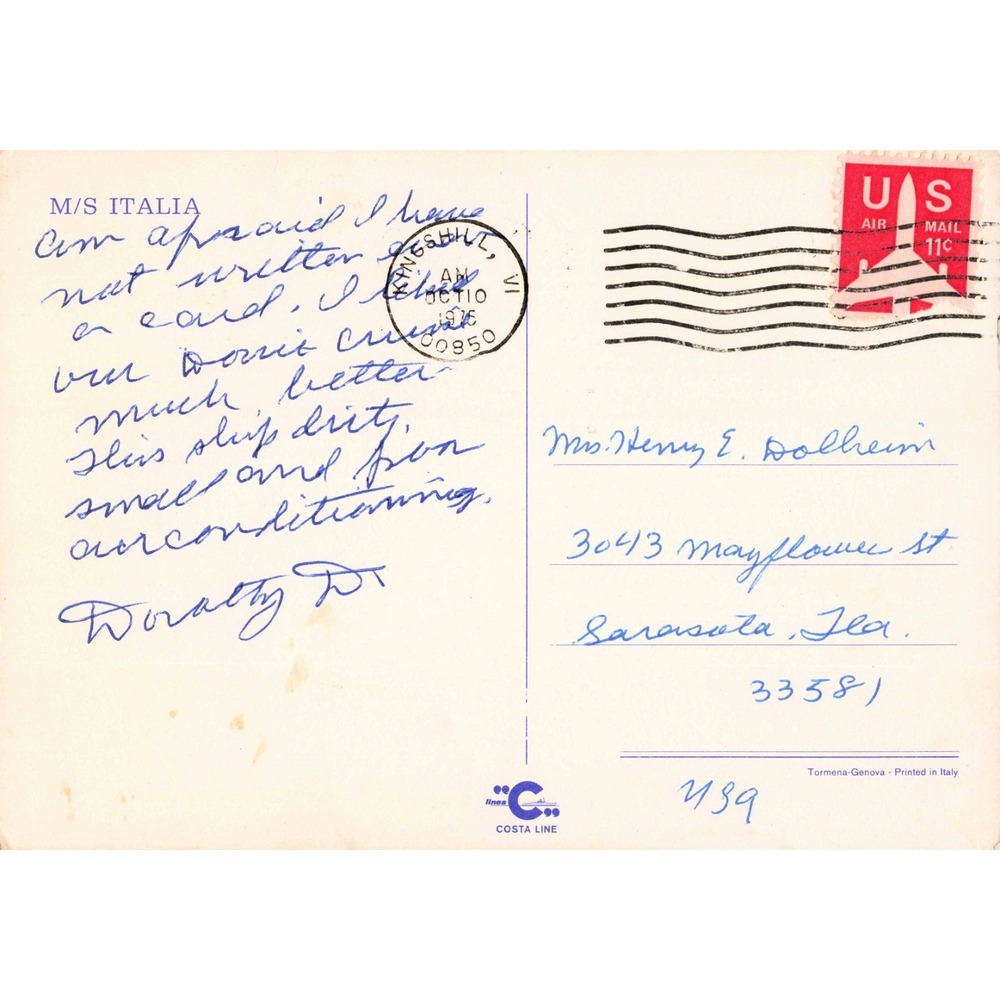 M/S ITALIA
Am afraid I have
not written even
a card. I liked
our Doric cruise
much better
This ship dirty,
small and poor
airconditioning.
Dorothy D.
KINGSHILL, VI
AM
OCT 10
1975
00850
US
AIR MAIL
11¢
Mrs. Henry E. Dolheim
3043 Mayflower St
Sarasota, Fla.
33581
USA
Tormena-Genova - Printed in Italy
linea "C"
COSTA LINE